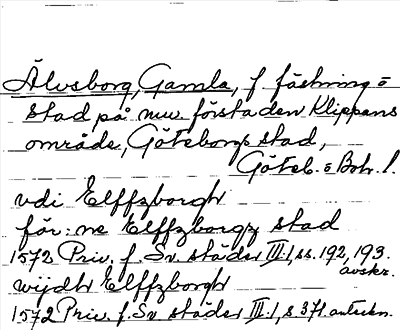 Älvsborg, Gamla, f fästning o
stad på nuv. förstaden Klippans
område, Göteborgs stad,
Göteb. o Boh. l.
vdi Elffzborgh
för:ne Elffzborgz stad
1572 Priv. f. Sv. städer III:1, ss. 192, 193.
avskr.
wijdh Elffzborgh
1572 Priv. f. Sv städer III:1, s 371. anteckn.